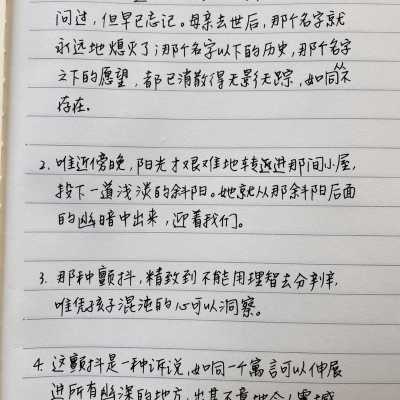 问过，但早已忘记。母亲去世后，那个名字就
永远地熄灭了；那个名字以下的历史，那个名字
之下的愿望，都已消散得无影无踪，如同从不
存在。
2. 唯近傍晚，阳光才艰难地转进那间小屋，
投下一道浅淡的斜阳。她就从那斜阳后面
的幽暗中出来，迎着我们。
3. 那种颤抖，精致到不能用理智去分辨，
唯凭孩子混沌的心可以洞察。
4. 这颤抖是一种诉说，如同一个寓言可以伸展
进所有幽深的地方，出其不意地令